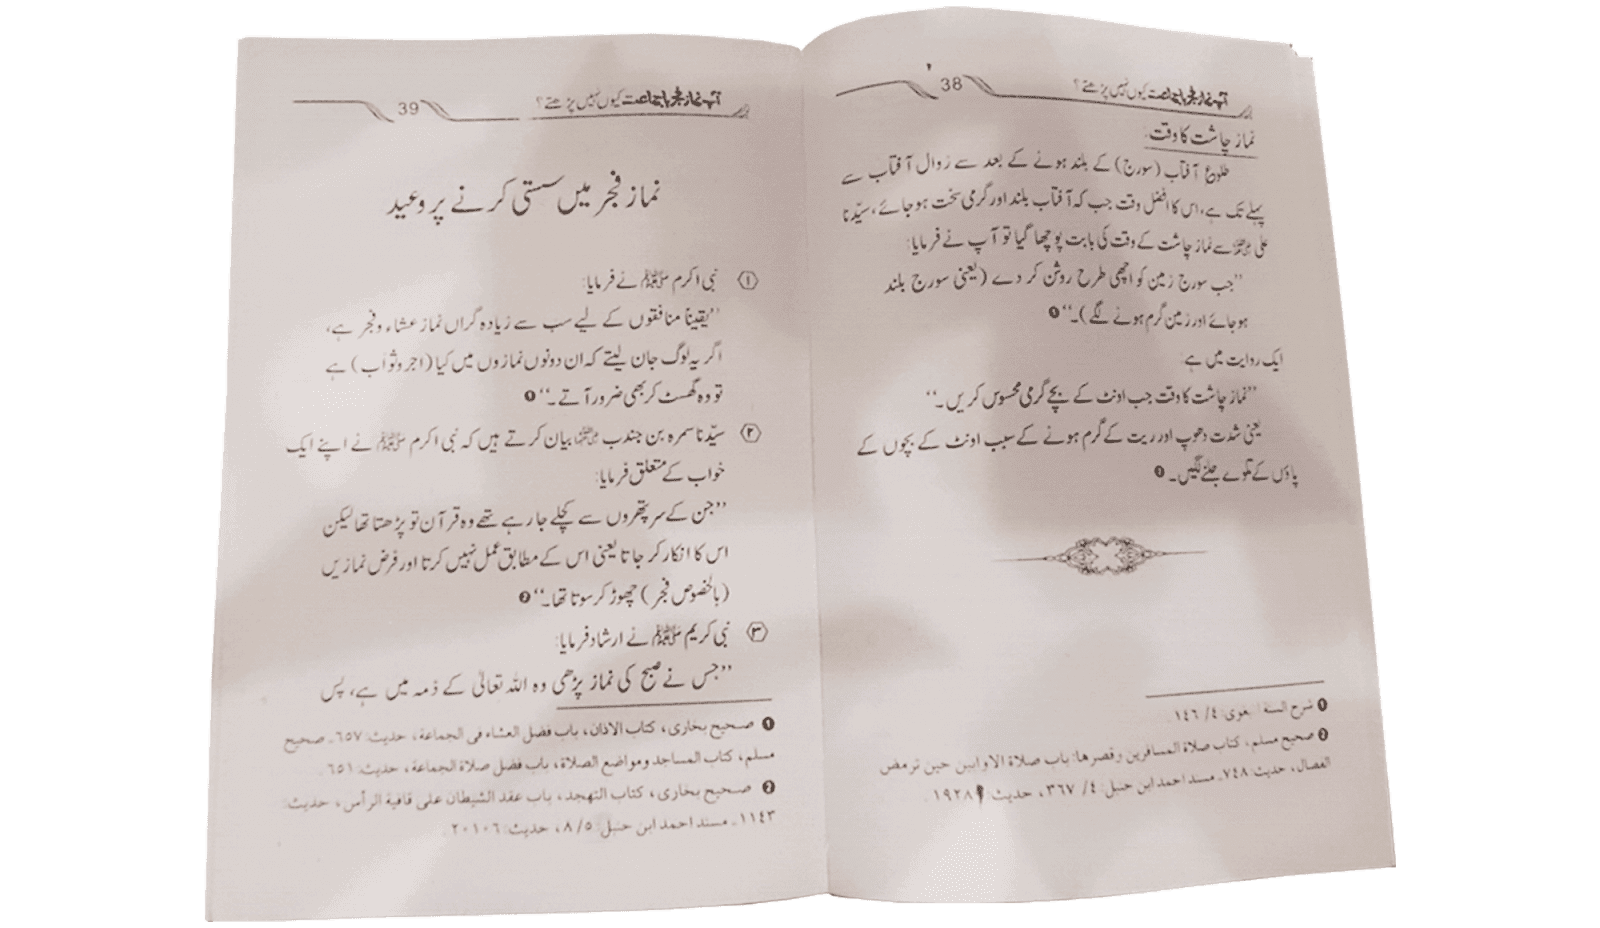 آپ نماز فجر باجماعت کیوں نہیں پڑھتے؟ 38
نماز چاشت کا وقت:
طلوع آفتاب (سورج) کے بلند ہونے کے بعد سے زوال آفتاب سے
پہلے تک ہے، اس کا افضل وقت جب کہ آفتاب بلند اور گرمی سخت ہو جائے، سیّدنا
علی رضی اللہ عنہ سے نماز چاشت کے وقت کی بابت پوچھا گیا تو آپ نے فرمایا:
”جب سورج زمین کو اچھی طرح روشن کر دے (یعنی سورج بلند
ہو جائے اور زمین گرم ہونے لگے)۔“ ❶
ایک روایت میں ہے:
”نماز چاشت کا وقت جب اونٹ کے بچے گرمی محسوس کریں۔“
یعنی شدت دھوپ اور ریت کے گرم ہونے کے سبب اونٹ کے بچوں کے
پاؤں کے تلوے جلنے لگیں۔ ❷
❶ شرح السنۃ للبغوی: ٤/ ١٤٦۔
❷ صحیح مسلم، کتاب صلاۃ المسافرین وقصرها: باب صلاۃ الاوابین حین ترمض
الفصال، حدیث: ٧٤٨۔ مسند احمد ابن حنبل: ٤/ ٣٦٧، حدیث: ١٩٢٨
آپ نماز فجر باجماعت کیوں نہیں پڑھتے؟ 39
نماز فجر میں سستی کرنے پر وعید
۱ نبی اکرم ﷺ نے فرمایا:
”یقیناً منافقوں کے لیے سب سے زیادہ گراں نماز عشاء و فجر ہے،
اگر یہ لوگ جان لیتے کہ ان دونوں نمازوں میں کیا (اجر وثواب) ہے
تو وہ گھسٹ کر بھی ضرور آتے۔“ ❶
۲ سیّدنا سمرہ بن جندب رضی اللہ عنہ بیان کرتے ہیں کہ نبی اکرم ﷺ نے اپنے ایک
خواب کے متعلق فرمایا:
”جن کے سر پتھروں سے کچلے جا رہے تھے وہ قرآن تو پڑھتا تھا لیکن
اس کا انکار کر جاتا یعنی اس کے مطابق عمل نہیں کرتا اور فرض نمازیں
(بالخصوص فجر) چھوڑ کر سوتا تھا۔“ ❷
۳ نبی کریم ﷺ نے ارشاد فرمایا:
”جس نے صبح کی نماز پڑھی وہ اللہ تعالیٰ کے ذمہ میں ہے، پس
❶ صحیح بخاری، کتاب الاذان، باب فضل العشاء فی الجماعة، حدیث: ٦٥٧۔ صحیح
مسلم، کتاب المساجد ومواضع الصلاة، باب فضل صلاة الجماعة، حدیث: ٦٥١۔
❷ صحیح بخاری، کتاب التهجد، باب عقد الشیطان علی قافیة الرأس، حدیث:
١١٤٣۔ مسند احمد ابن حنبل: ٥/ ٨، حدیث: ٢٠١٠٦۔